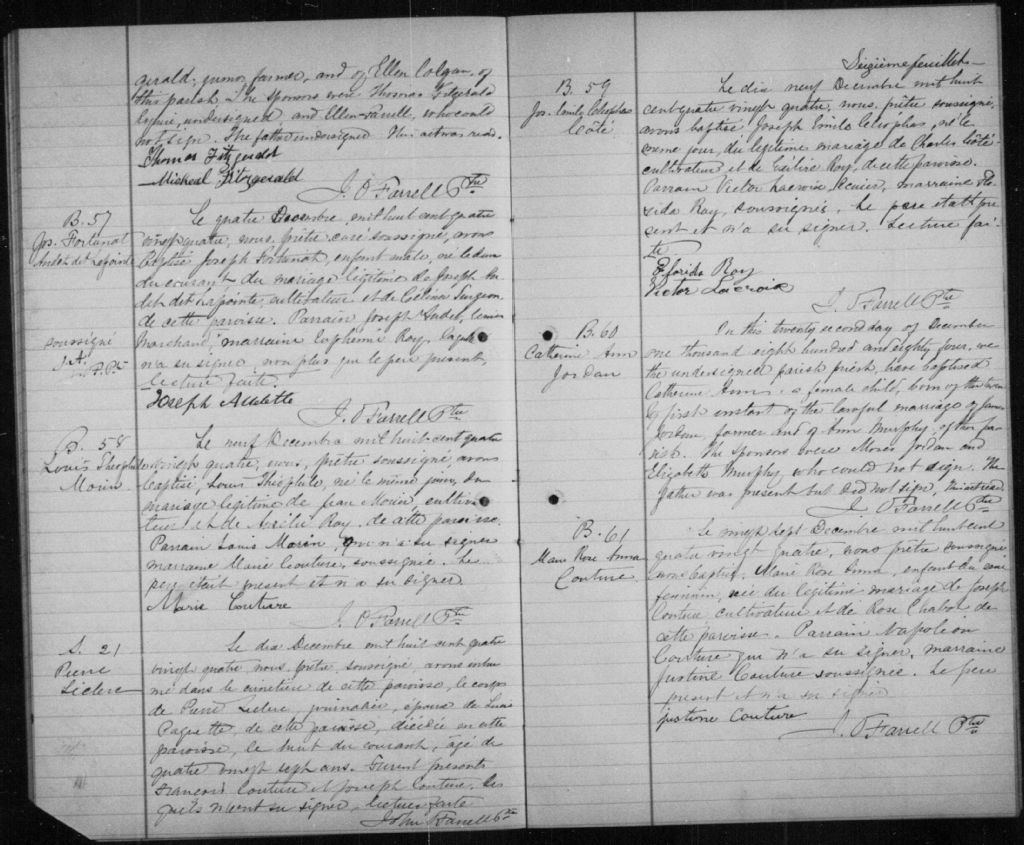 gerald, junior, farmer, and of Ellen Colgan, of
this parish. The sponsors were Thomas Fitzgerald
undersigned and Ellen Farrell, who could
not sign. The father undersigned. This act was read.
Thomas Fitzgerald
Micheal Fitzgerald
J. O'Farrell Ptre
B. 57
Jos. Fortunat
Audet dit Lapointe
Le quatre Decembre mil huit cent quatre
vingt quatre, nous, prêtre curé soussigné, avons
baptisé Joseph Fortunat, enfant male, né le deux
du courant du mariage légitime de Joseph Au
det dit Lapointe, cultivateur et de Célina Turgeon
de cette paroisse. Parrain Joseph Audet,
marchand, marraine Euphemie Roy, laquelle
n'a su signer non plus que le père présent,
lecture faite.
soussigné
J.A. P.P.
Joseph Audette
J. O'Farrell Ptre
B. 58
Louis Théophile
Morin
Le neuf Decembre mil huit cent quatre
vingt quatre, nous, prêtre soussigné, avons
baptisé, Louis Théophile, né le même jour, du
mariage légitime de Jean Morin, cultiva
teur et de Roy, de cette paroisse.
Parrain Louis Morin, qui n'a su signer
marraine Marie Couture, soussignée. Le
père était present et n'a su signer
Marie Couture
J. O'Farrell Ptre
S. 21
Pierre
Leclerc
Le dix Decembre mil huit cent quatre
vingt quatre nous prêtre soussigné avons inhu
mé dans le cimetière de cette paroisse, le corps
de Pierre Leclerc, journalier, époux de Luce
Paquette, de cette paroisse, décédé en cette
paroisse, le huit du courant, âgé de
quatre vingt sept ans. Furent présents
François Couture et Joseph Couture, les
quels n'ont su signer, lecture faite
John Farrell Ptre
Seizième feuillet
B. 59
Jos. Emile Cléophas
Côté
Le dix neuf Decembre mil huit
cent quatre vingt quatre, nous, prêtre soussigné,
avons baptisé, Joseph Emile Cléophas, né le
même jour, du légitime mariage de Charles Côté
cultivateur et de Célire Roy, de cette paroisse.
Parrain Victor Lacroix, marraine Flo
rida Roy, soussignés, le père était pré
sent et n'a su signer. Lecture fai-
te
Florida Roy
Victor Lacroix
J. O'Farrell Ptre
B. 60
Catherine Ann
Jordan
On this twenty second day of December
one thousand eight hundred and eighty four, we
the undersigned parish priest, have baptized
Catherine Ann, a female child, born of the twen
ty first instant of the lawful marriage of James
Jordan, farmer and of Ann Murphy, of this pa
rish. The sponsors were Moses Jordan and
Elizabeth Murphy who could not sign. The
father was present but did not sign, this act read
J. O'Farrell Ptre
B. 61
Marie Rose Anna
Couture
Le vingt sept Decembre mil huit cent
quatre vingt quatre, nous prêtre soussigné
avons baptisé, Marie Rose Anna, enfant du sexe
feminin, née du légitime mariage de Joseph
Couture cultivateur et de Rose Chabot de
cette paroisse. Parrain Napoléon
Couture qui n'a su signer, marraine
Justine Couture soussignée. Le père
present et n'a su signer
justine Couture
J. O'Farrell Ptre